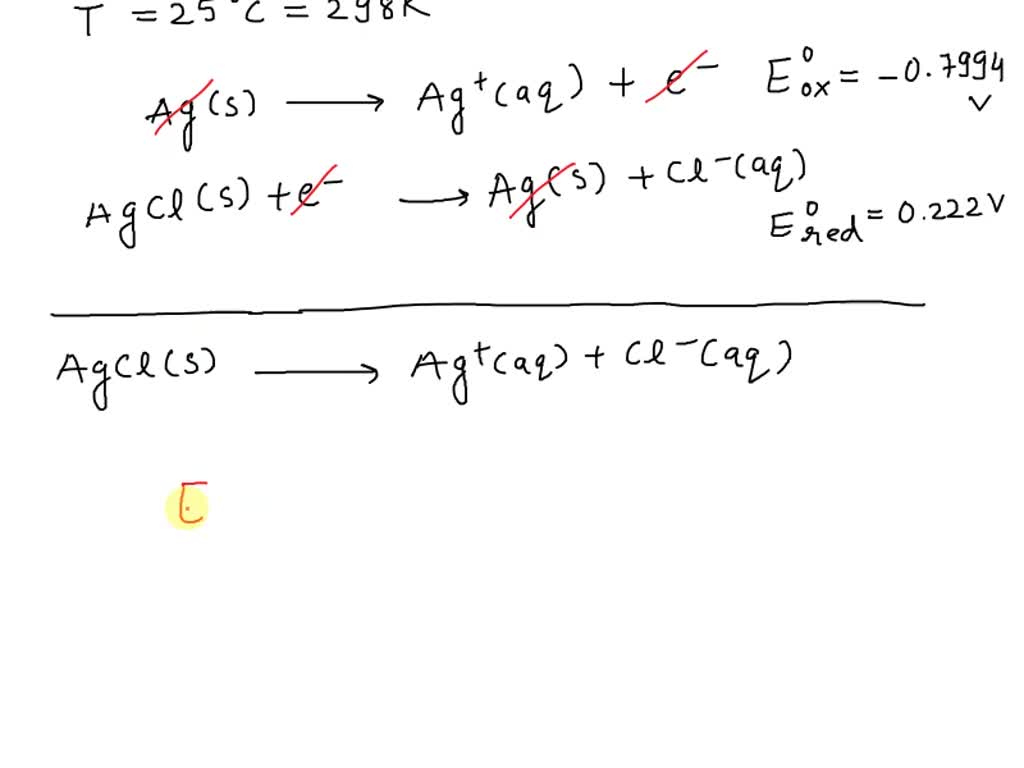 T = 25°C = 298K
Ag(s) ⟶ Ag⁺(aq) + e⁻ E°ox = -0.7994 V
AgCl(s) + e⁻ ⟶ Ag(s) + Cl⁻(aq)
E°red = 0.222V
AgCl(s) ⟶ Ag⁺(aq) + Cl⁻(aq)
E